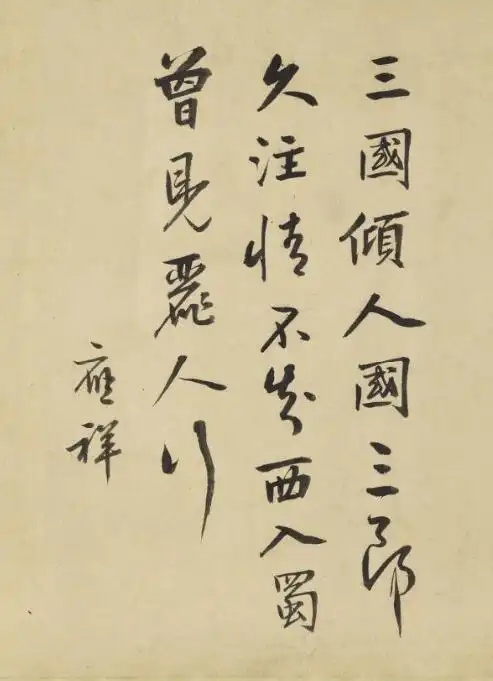 三國傾人國三郎
久注情不知西入蜀
曾見麗人行
應祥